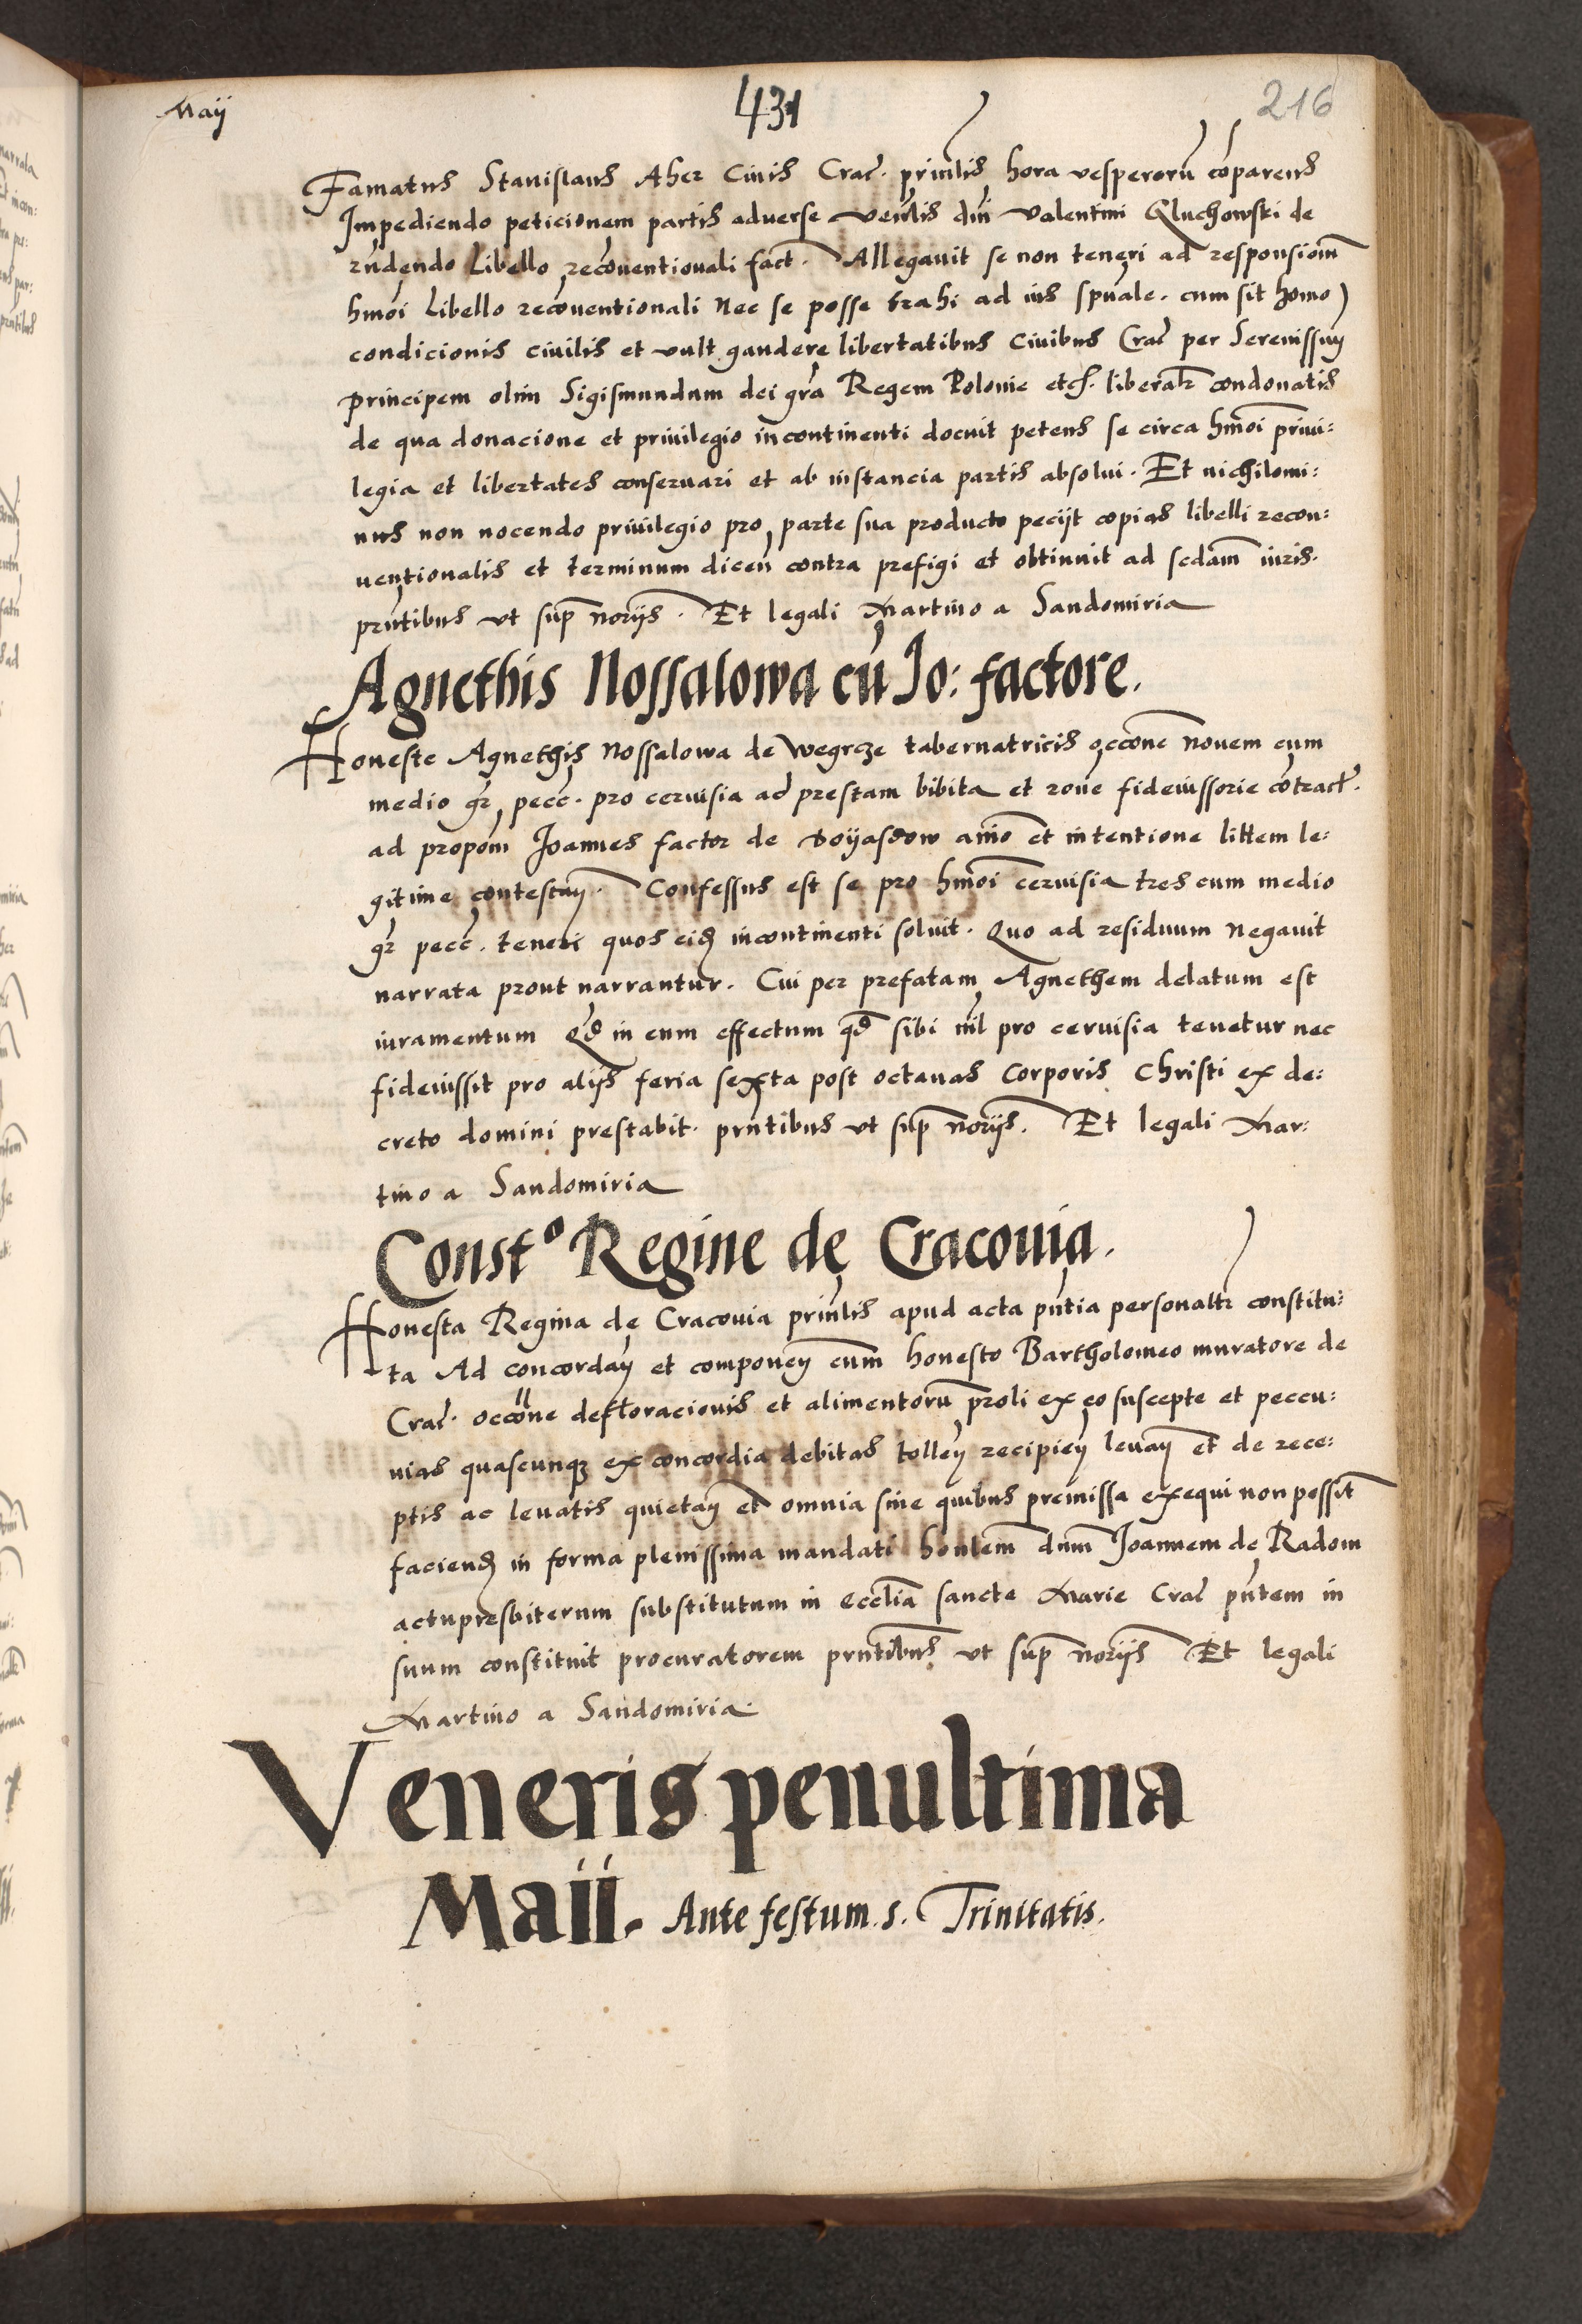 Maij
431
216
Famatus Stanislaus Aher Civis Crac̄. prin̄lis hora vesperorū cōparens
Impediendo peticionem partis adverse ven̄lis dn̄i Valentini Gluchowski de
rn̄dendo Libello recōventionali fact. Allegavit se non teneri ad responsionē
hm̄oi Libello recōventionali Nec se posse trahi ad ius spūale. cum sit homo
condicionis civilis et vult gaudere libertatibus Civibus Crac̄ per Serenissim̄
principem olim Sigismundum dei gr̄a Regem Polonie etc. liberalr̄ condonatis
de qua donacione et privilegio incontinenti docuit petens se circa hm̄oi privi:
legia et libertates conservari et ab instancia partis absolvi. Et nichilomi:
nus non nocendo privilegio pro parte sua producto pecijt copias libelli recon:
ventionalis et terminum dicen̄ contra prefigi et obtinuit ad scdam̄ iuris.
prn̄tibus ut sup̄ norijs. Et legali Martino a Sandomiria
Agnethis Nossalowa cū Jo: factore.
Honeste Agnethis Nossalowa de Wegrcze tabernatricis occōne Novem cum
medio gr̄ pecc̄. pro cervisia ad prestam bibita et rōne fideiussorie cōtract.
ad propōm Joannes factor de ānīo et intentione littem le:
gitime contestan̄. Confessus est se pro hm̄oi cervisia tres cum medio
gr̄ pecc̄. teneri quos eid̄ incontinenti solvit. Quo ad residuum Negavit
narrata prout narrantur. Cui per prefatam Agnethem delatum est
iuramentum Qd̄ in eum effectum qd̄ sibi nīl pro cervisia tenetur nec
fideiussit pro alijs feria sexta post octavas Corporis Christi ex de:
creto domini prestabit. prn̄tibus ut sup̄ norijs. Et legali Mar:
tino a Sandomiria
Constº Regine de Cracovia.
Honesta Regina de Cracovia prin̄lis apud acta pn̄tia personaltr̄ constitu:
ta Ad concordan̄ et componen̄ cum honesto Bartholomeo muratore de
Crac̄. occōne defloracionis et alimentorū proli ex eo suscepte et peccu:
nias quascunqz ex concordia debitas tollen̄ recipien̄ levan̄ et de rece:
ptis ac levatis quietan̄ et omnia sine quibus premissa exequi non possit̄
faciend̄ in forma plenissima mandati honlem̄ dnm̄ Joannem de Radom
actupresbiterum substitutum in Eccl̄ia sancte Marie Crac̄ pn̄tem in
suum constituit procuratorem prn̄tibus ut sup̄ norijs Et legali
Martino a Sandomiria.
Veneris penultima
Maii. Ante festum. s. Trinitatis.